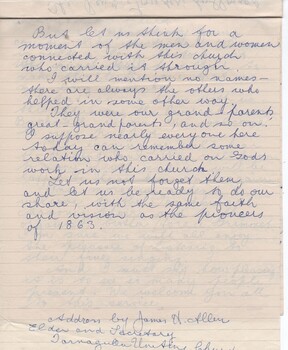 But let us think for a
moment of the men and women
connected with this church
who carried it through.
I will mention no names -
there are always the others who
helped in some other way.
They were our grand-parents,
great-grandparents, and so on.
I suppose nearly everyone here
today can remember some
relation who carried on Gods
work in this church.
Let us not forget them
and let us be ready to do our
share, with the same faith
and vision as the pioneers
of 1863.
Address by James Allen
Elder and Secretary
Tarnagulla Uniting